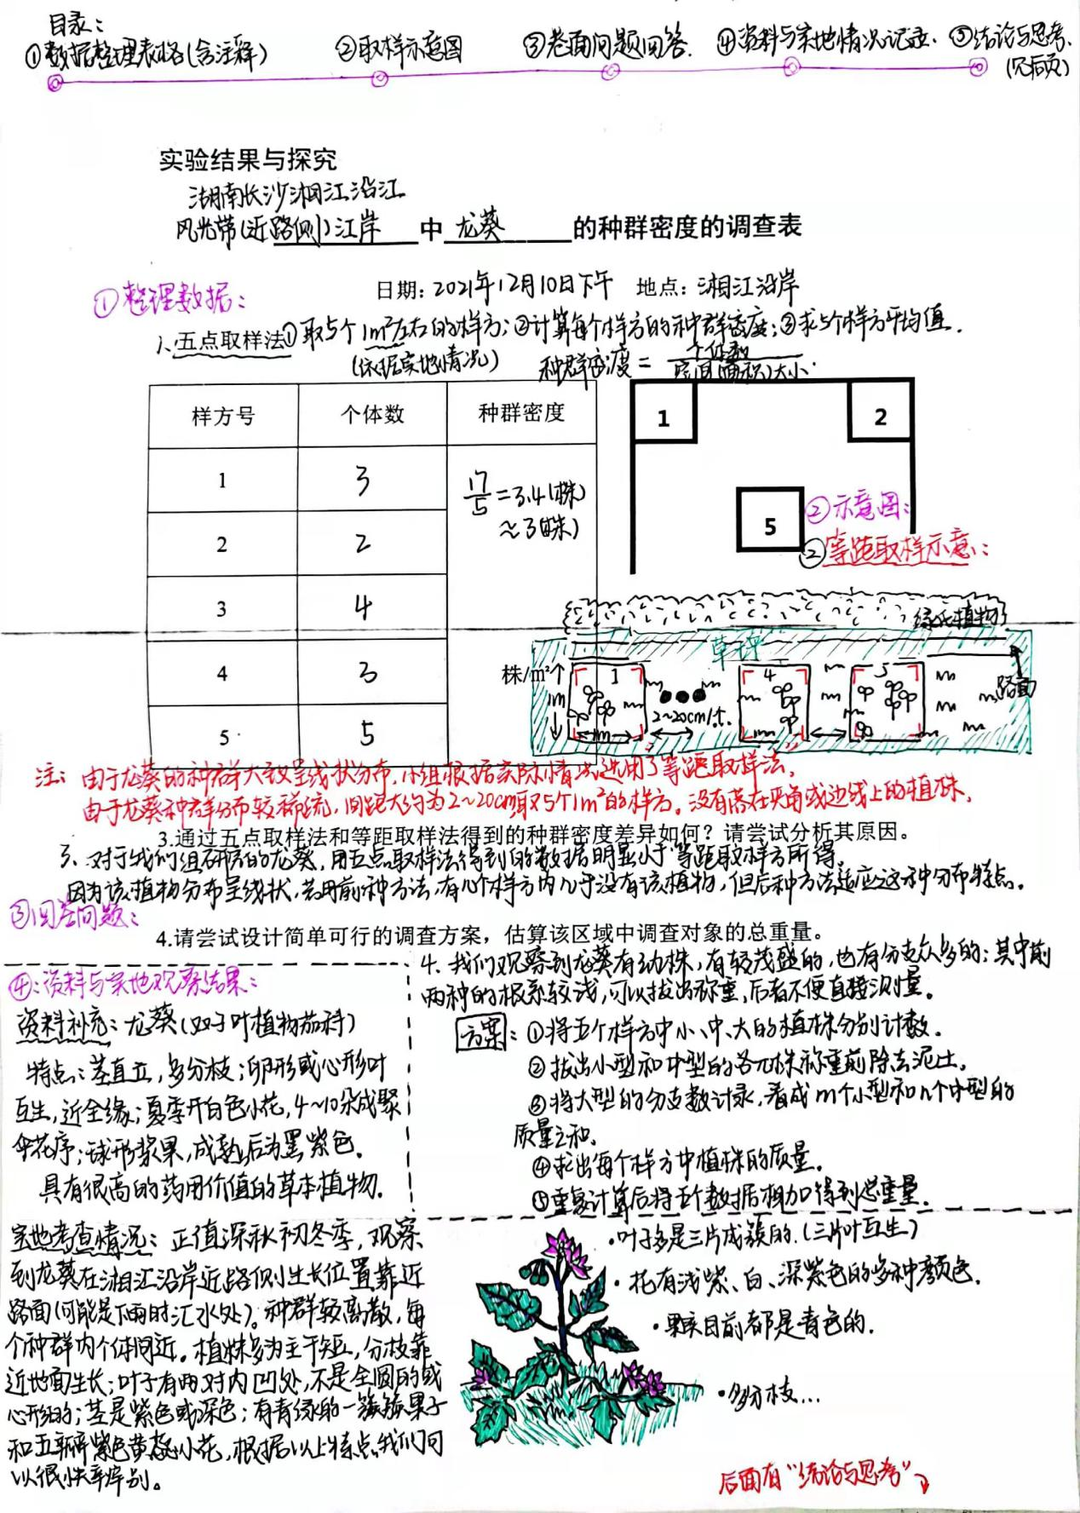 目录：
①数据整理表格(含注释) ②取样示意图 ③卷面问题回答. ④资料与实地情况记录. ⑤结论与思考.
(见后页)
实验结果与探究
湖南长沙湘江沿江
风光带(近路侧)江岸 中 龙葵 的种群密度的调查表
①整理数据：
日期：2021年12月10日下午 地点：湘江沿岸
1、五点取样法①取5个1m²左右的样方；②计算每个样方的种群密度；③求5个样方平均值.
(依据实地情况) 种群密度 = 个体数
空间(面积)大小.
样方号 个体数 种群密度
1 3
17/5 = 3.4(株)
≈3(株)
2 2
3 4
4 3
5 5
1 2
5
②示意图：
②等距取样示意：
绿化植物
草坪
株/m²
1 4 5
1m
2~20cm/t.
1m
路面
注：由于龙葵的种群大致呈线状分布，小组根据实际情况选用了等距取样法，
由于龙葵种群分布较稀疏，间距大约为2~20cm取5个1m²的样方。没有落在夹角或边线上的植株.
3.通过五点取样法和等距取样法得到的种群密度差异如何？请尝试分析其原因。
3、对于我们组研究的龙葵，用五点取样法得到的数据明显小于等距取样方所得.
因为该植物分布呈线状，若用前种方法，有几个样方内几乎没有该植物，但后种方法适应这种分布特点.
③回答问题：
4.请尝试设计简单可行的调查方案，估算该区域中调查对象的总重量。
4. 我们观察到龙葵有幼株，有较茂盛的，也有分支众多的；其中前
两种的根系较浅，可以拔出称重，后者不便直接测量。
方案：①将五个样方中小、中、大的植株分别计数。
②拔出小型和中型的各几株称重前除去泥土。
③将大型的分支数计录，看成m个小型和n个中型的
质量之和.
④求出每个样方中植株的质量。
⑤重复计算后将五个数据相加得到总重量.
④：资料与实地观察结果：
资料补充：龙葵(双子叶植物茄科)
特点：茎直立，多分枝；卵形或心形叶
互生，近全缘；夏季开白色小花，4~10朵成聚
伞花序；球形浆果，成熟后为黑紫色.
具有很高的药用价值的草本植物.
实地考查情况：正值深秋初冬季，观察
到龙葵在湘江沿岸近路侧生长位置靠近
路面(可能是下雨时汇水处)。种群较离散，每
个种群内个体间近。植株多为主干短，分枝靠
近地面生长；叶子有两对内凹处，不是全圆的或
心形的；茎是紫色或深色；有青绿的一簇簇果子
和五瓣紫色黄蕊小花，根据以上特点我们可
以很快辛辨别。
·叶子多是三片成簇的.(三片叶互生)
·花有浅紫、白、深紫色的多种颜色.
·果实目前都是青色的.
·多分枝…
后面有“结论与思考”